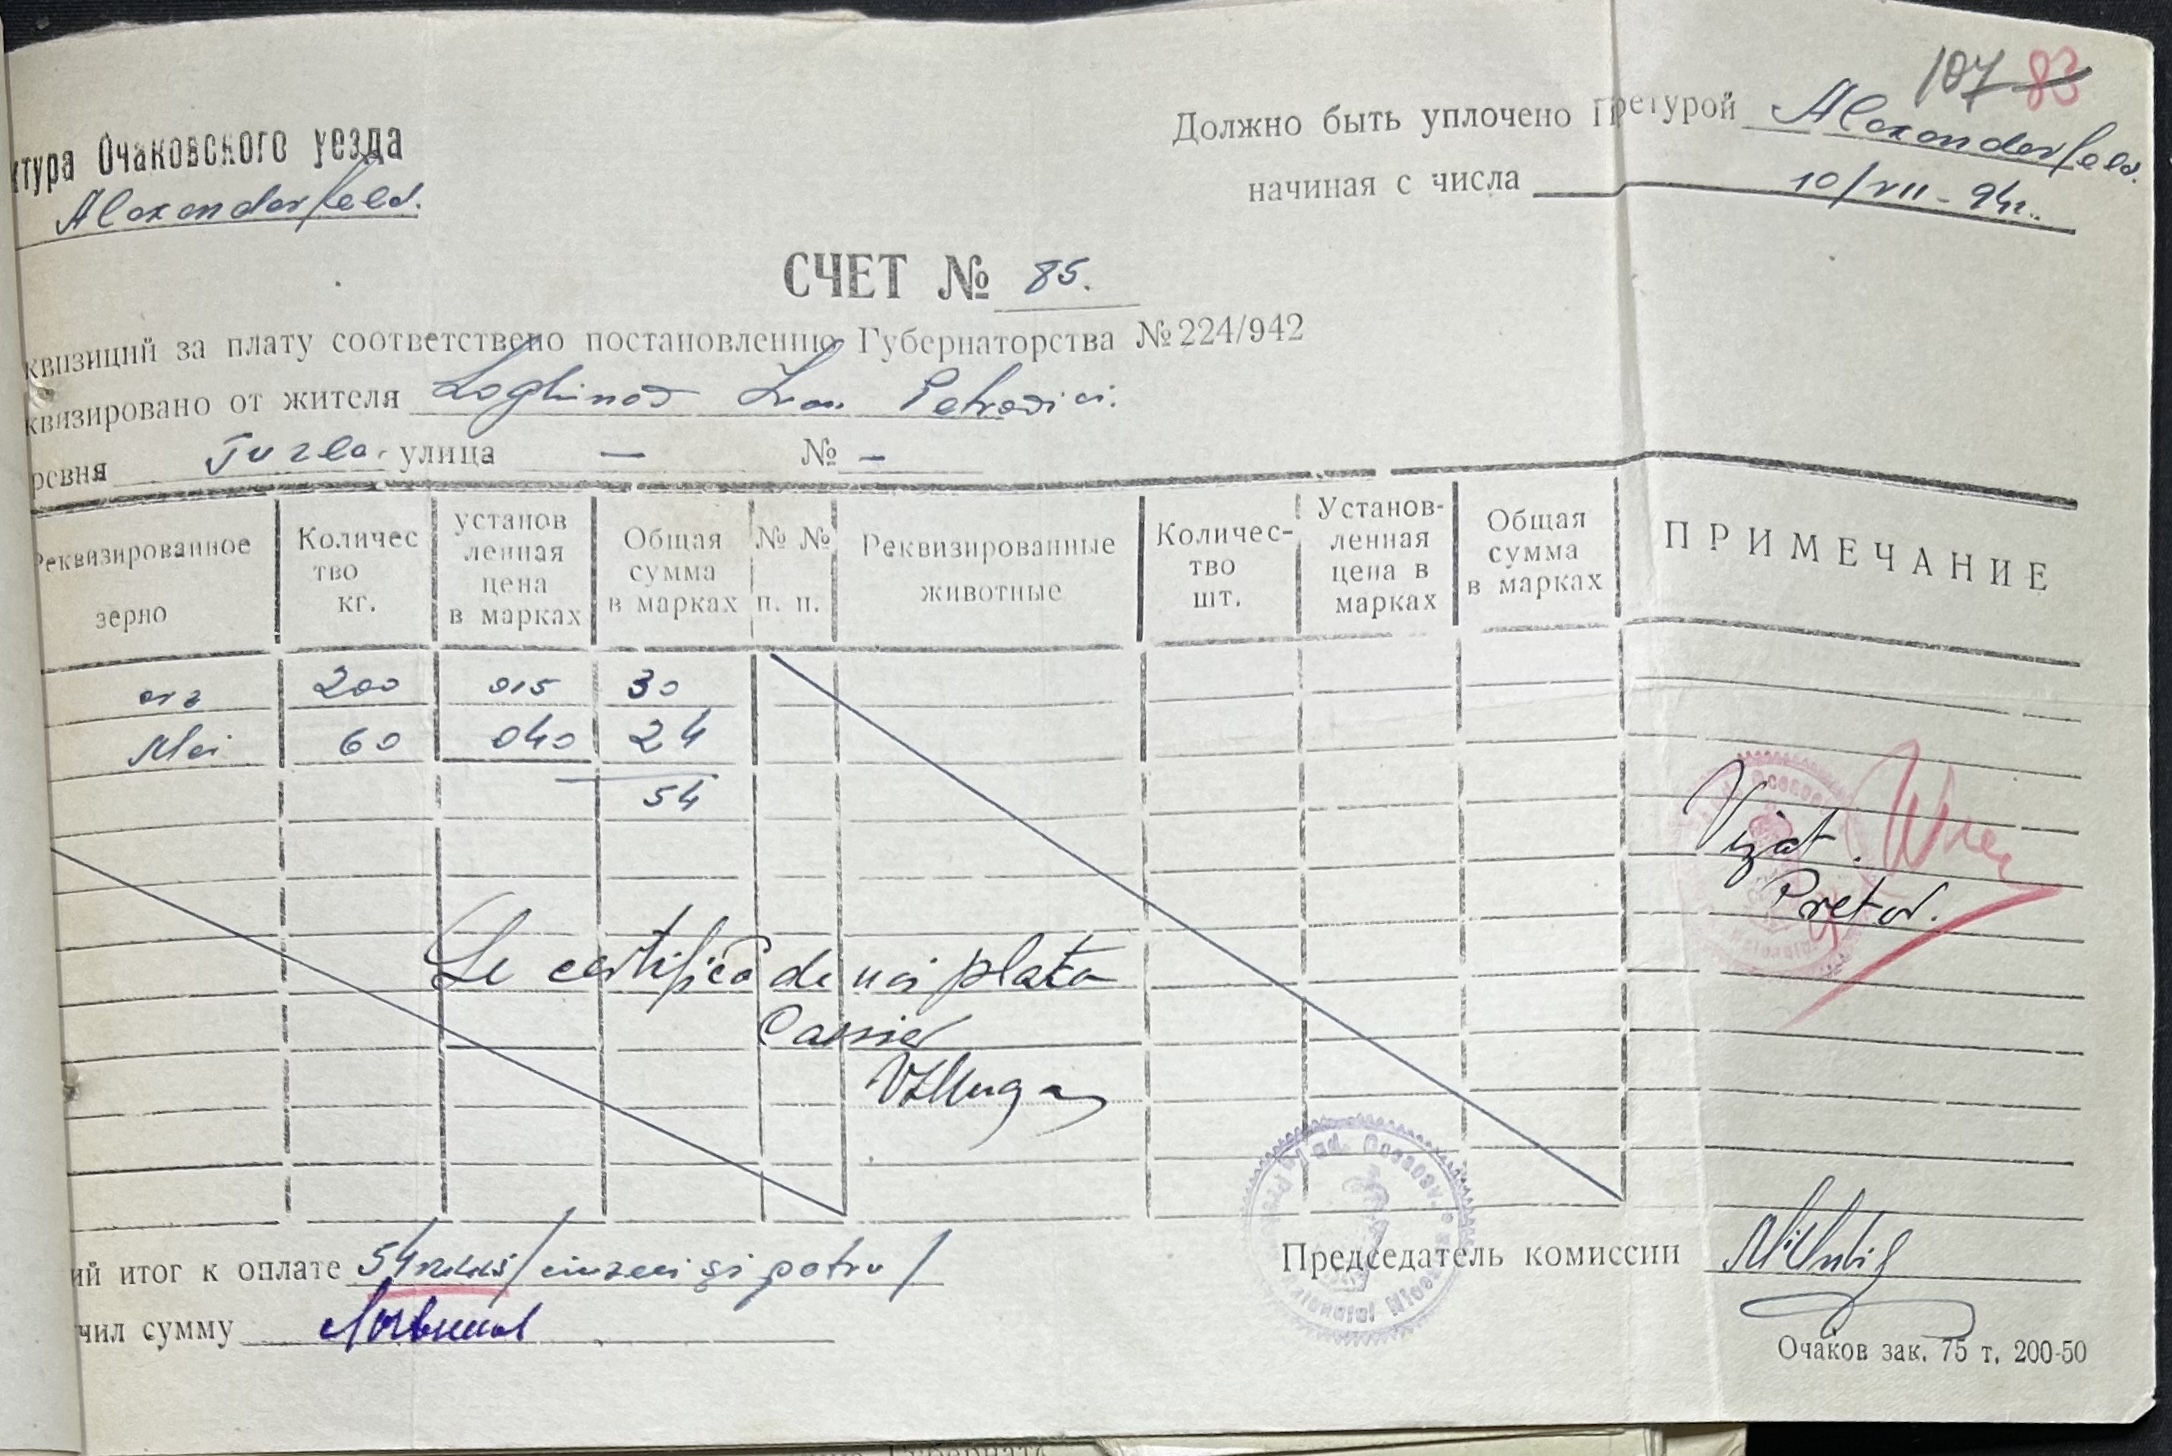 107 83
Должно быть уплочено Претурой Alexanderfeld.
ктура Очаковского уезда
Alexanderfeld.
начиная с числа 10/VII - 942.
СЧЕТ № 85.
квизиций за плату соответствено постановлению Губернаторства № 224/942
квизировано от жителя Loghinov Ivan Petrovici.
ревня Tuzla. улица — № —
Реквизированное зерно
Количес тво кг.
установ ленная цена в марках
Общая сумма в марках
№ № п. п.
Реквизированные животные
Количес- тво шт.
Установ- ленная цена в марках
Общая сумма в марках
ПРИМЕЧАНИЕ
orz 200 015 30
Mei 60 040 24
54
Vizat.
Pretor.
Se certifică de noi plata
Cassier
ий итог к оплате 54 /cinzeci și patru/
Председатель комиссии
чил сумму
Очаков зак. 75 т. 200-50